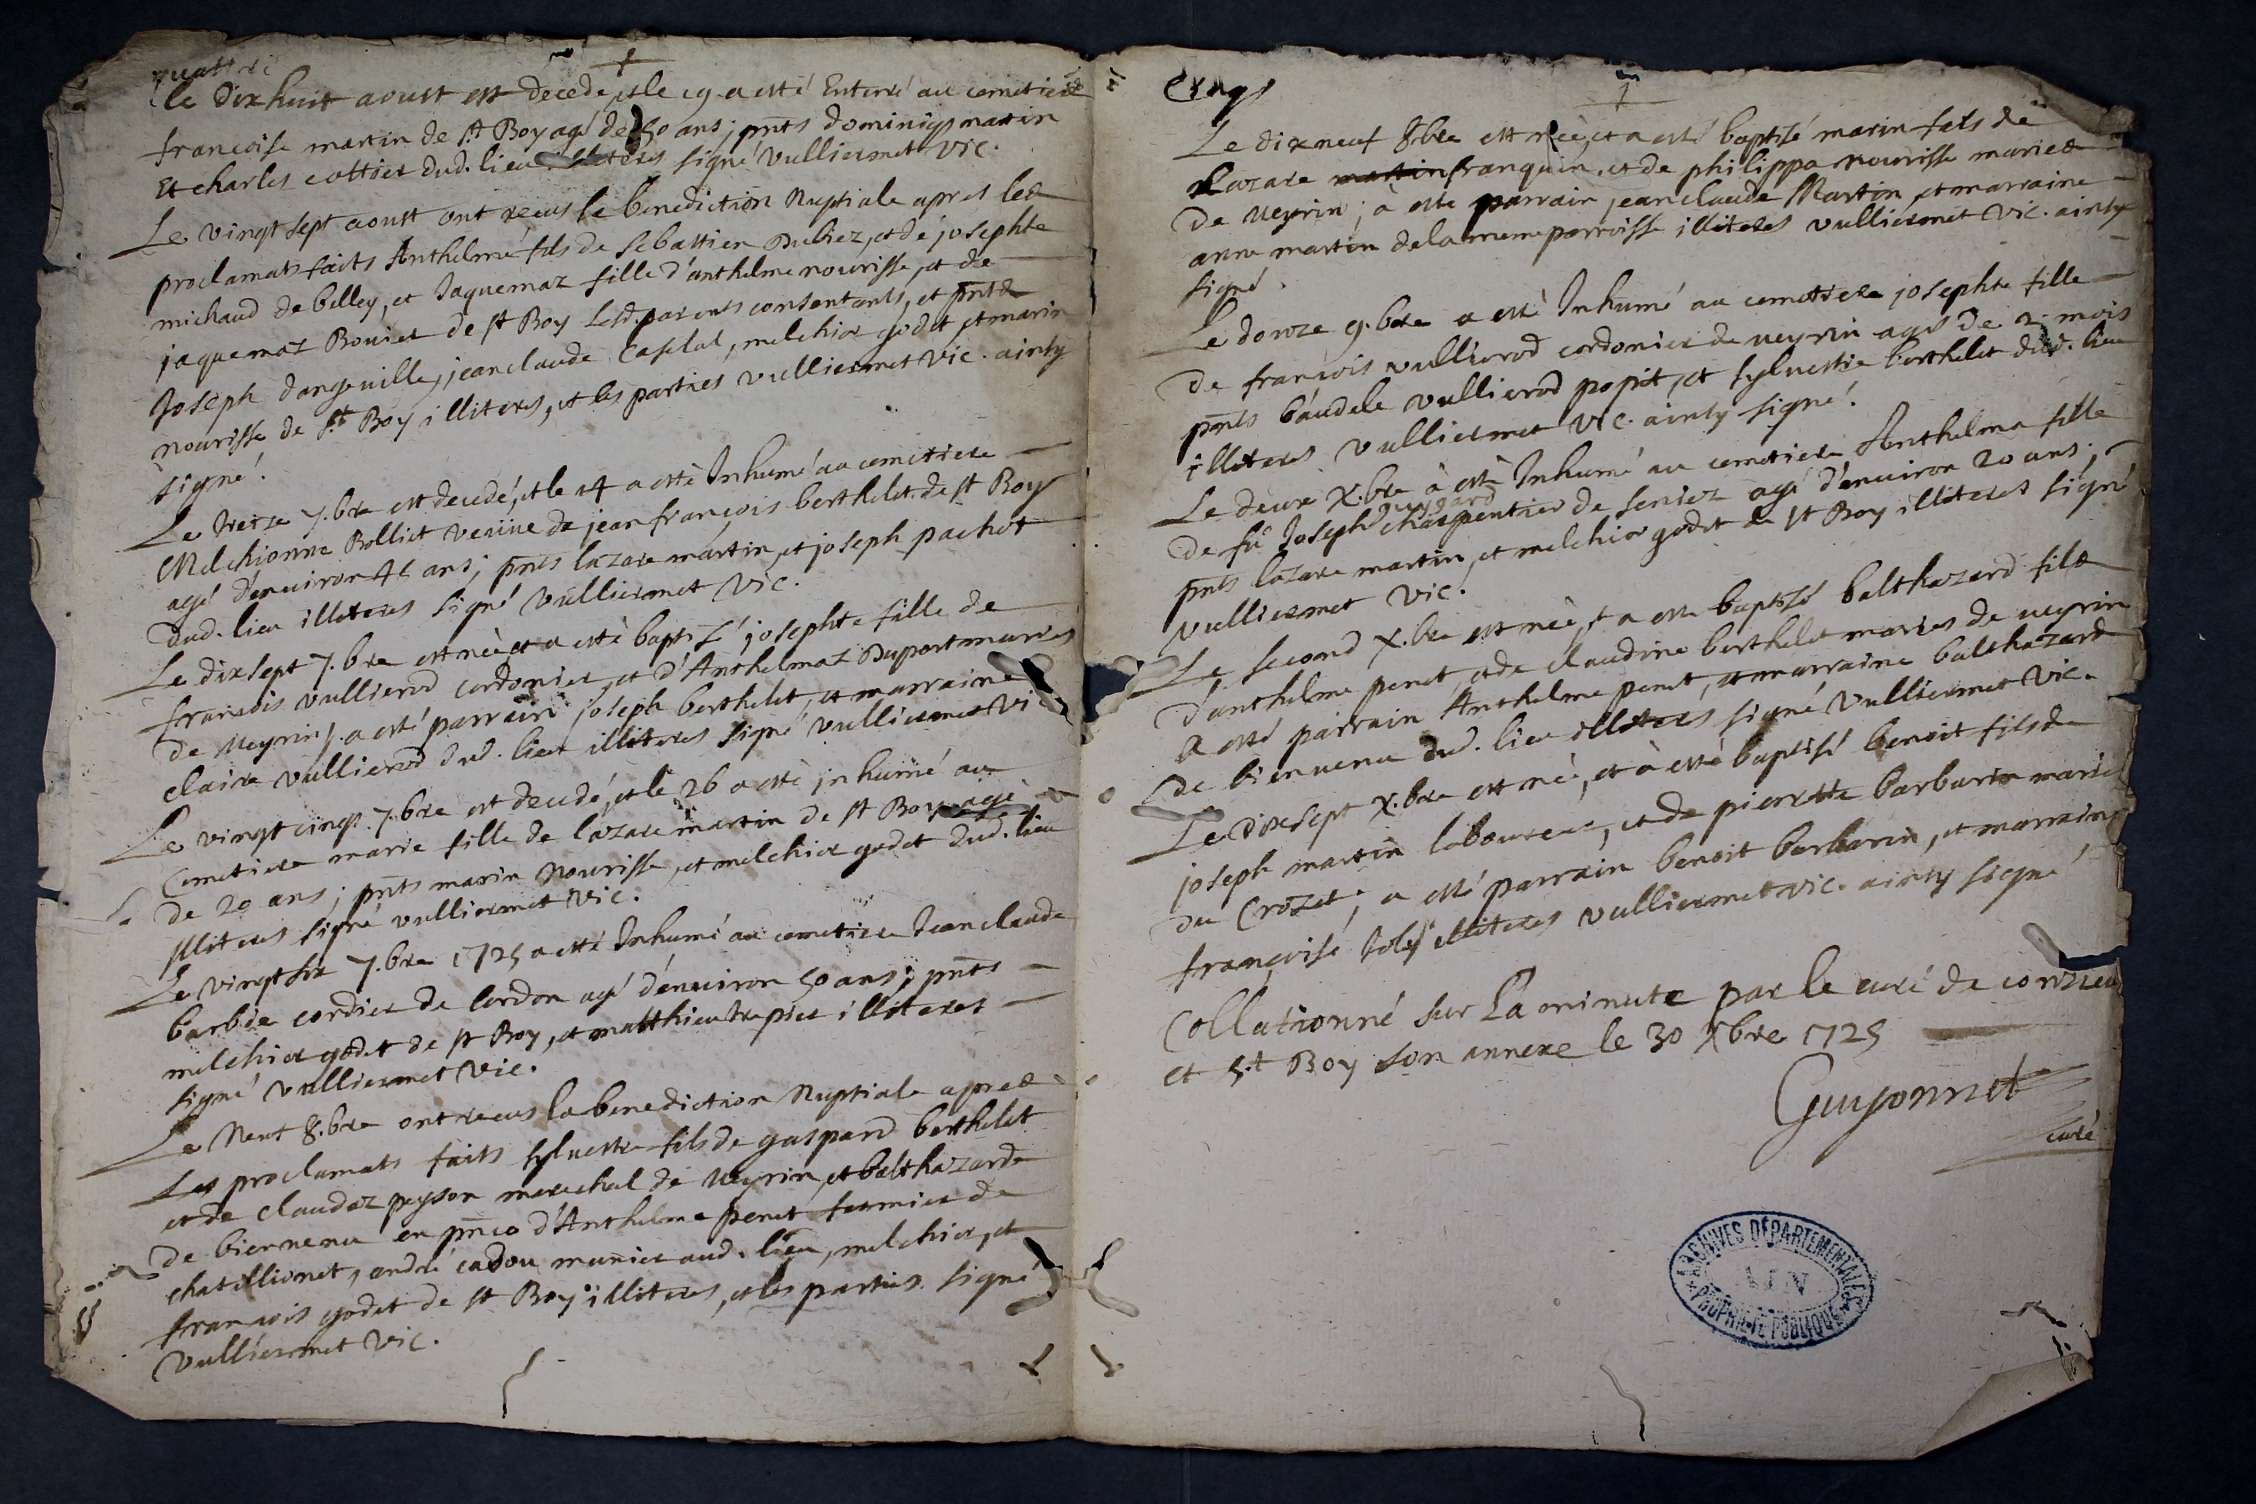 quattre
le dix huit aoust est decedé, et le 19 a esté Enterré au cemetiere
francoise martin de St Boy agé de 50 ans; pnts dominiqs martin
Et charles cottier dud. lieu illiteres signé vulliermet vic.
Le vingt sept aoust ont receus la benediction Nuptiale apres les
proclamats faits Anthelme fils de sebastien Dubiez, et de josephte
michaud de belley, et Jaquemaz fille d'anthelme nourisse, et de
jaquemaz Bouier de St Boy Lesd. parents consentants, et pnts
Joseph dangeuille, jean claude Caselat, melchior godet et marin
nourisse de St Boy illiteres, et les parties vulliermet vic. ainsy
signé.
Le treize 7.bre est decedé, et le 14 a estè Inhumé au cemetiere
Melchionne Rolliet veuiue de jean françois berthelet de St Boy
agé d'enuiron 45 ans; pnts lazare martin, et joseph pachot
dud. lieu illiteres signé vulliermet vic.
Le dixsept 7.bre est née et a estè baptisé josephte fille de
francois vullierod cordonier, et d'Anthelmaz Duport maries
de Ueyrin; a esté parrain joseph berthelet, et marraine
claire vullierod dud. lieu illiteres signé vulliermet vi
Le vingt cinqs 7.bre est decedé, et le 26 a estè jnhumé au
Cemetiere marie fille de lazare martin de St Boy agé
de 20 ans; pnts marin Nourisse, et melchior godet dud. lieu
jlliteres signé vulliermet vic.
Le vingt six 7.bre 1725 a esté Inhumé au cemetiere Jean claude
barbie cordier de lordon agé d'enuiron 50 ans; pnts
melchior godet de St Boy, et matthieu trapier illiteres
signé vulliermet vic.
Le Neuf 8.bre ont receus la benediction Nuptiale apres
Les proclamats faits syluestre fils de gaspard berthelet
et de claudaz peyson marechal de Ueyrin, et balthazarde
de bienuenu en pnce d'Anthelme penet fermier de
chatillionet, andré cadou munier aud. lieu, melchior, et
francois godet de St Boy illiteres, et les parties signé
vulliermet vic.
Cinqs
Le dixneuf 8.bre est née, et a esté baptisé marin fils de
Lazare martin franquin, et de philippa nourisse maries
de Ueyrin; a esté parrain jean claude Martin, et marraine
anne martin de la meme parroisse illiteres vulliermet vic. ainsy
signé.
Le douze 9.bre a esté Inhumé au cemetiere josephte fille
de francois vullierod cordonier de ueyrin agé de 2 mois
pnts baudele vullierod popit, et syluestre berthelet dud. lieu
illiteres vulliermet vic. ainsy signé.
Le deuxe X.bre à estè Inhumé au cemetiere Anthelma fille
de fû Joseph charpentier de seniez agé d'enuiron 20 ans;
pnts lazare martin, et melchior godet de St Boy illiteres signé
vulliermet vic.
Le second X.bre est née, et a esté baptisé balthazard fils
d'anthelme penet, et de claudine berthelet maries de ueyrin
a esté parrain Anthelme penet, et marraine balthazarde
de bienuenu dud. lieu illiteres signé vulliermet vic.
Le dixsept X.bre est née, et à esté baptisé benoit fils de
joseph martin laboureur, et de pierrette barbarin maries
du Crozet; a esté parrain benoit barbarin, et marraine
françoise joly illiteres vulliermet vic. ainsy signé
Collationné sur La minute par le curé de conzieu
et St Boy son annexe le 30 Xbre 1725
Guyonnet
curé
ARCHIVES DÉPARTEMENTALES
AIN
PROPRIÉTÉ PUBLIQUE